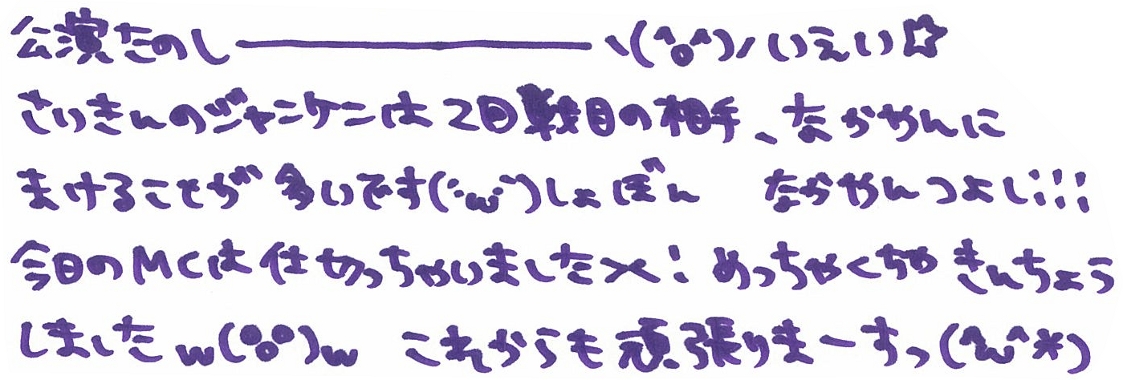 公演たのし――――ヽ(^o^)ノいえい☆
さいきんのジャンケンは2回戦目の相手、なかやんに
まけることが多いです(´･ω･`)しょぼん　なかやんつよし!!!
今日のMCは仕切っちゃいました×！めっちゃくちゃきんちょう
しましたw(°o°)w　これからも頑張りまーすっ(^ω^*)